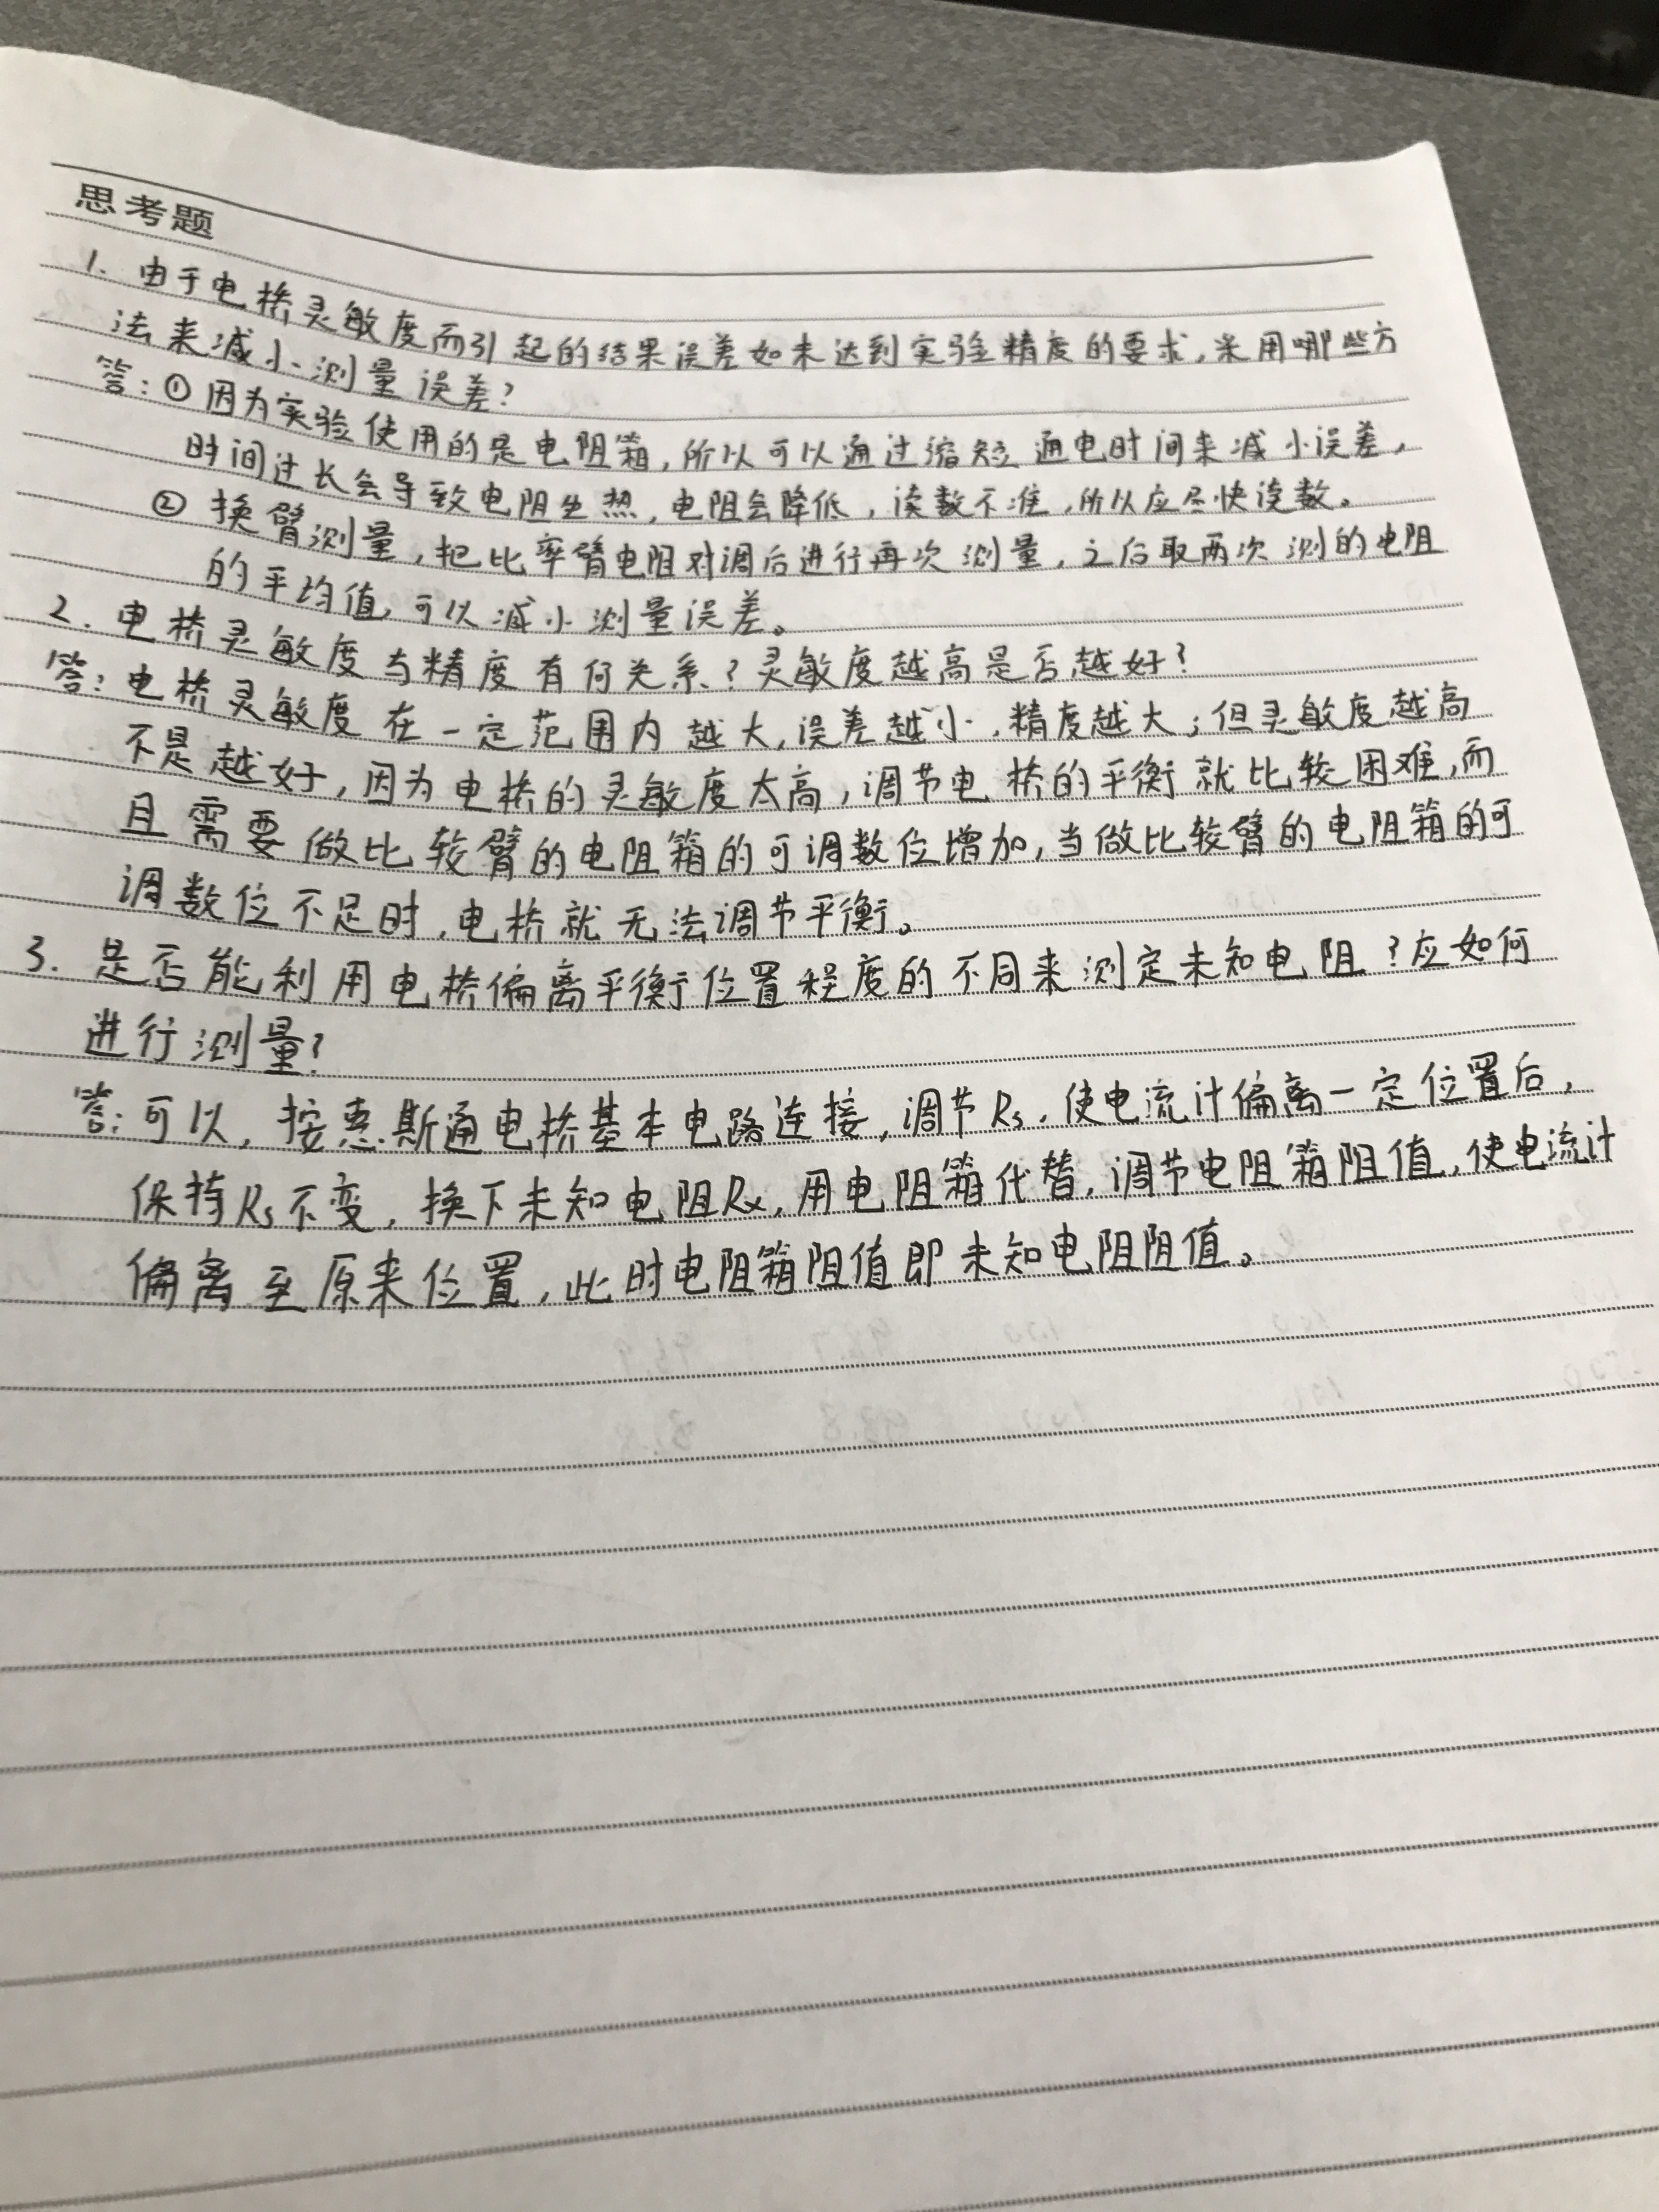 思考题
1. 由于电桥灵敏度而引起的结果误差如未达到实验精度的要求,采用哪些方
法来减小测量误差?
答:①因为实验使用的是电阻箱,所以可以通过缩短通电时间来减小误差,
时间过长会导致电阻生热,电阻会降低,读数不准,所以应尽快读数。
② 换臂测量,把比率臂电阻对调后进行再次测量,之后取两次测的电阻
的平均值,可以减小测量误差。
2. 电桥灵敏度与精度有何关系?灵敏度越高是否越好?
答:电桥灵敏度在一定范围内越大,误差越小,精度越大;但灵敏度越高
不是越好,因为电桥的灵敏度太高,调节电桥的平衡就比较困难,而
且需要做比较臂的电阻箱的可调数位增加,当做比较臂的电阻箱的可
调数位不足时,电桥就无法调节平衡。
3. 是否能利用电桥偏离平衡位置程度的不同来测定未知电阻?应如何
进行测量?
答:可以,按惠斯通电桥基本电路连接,调节Rs,使电流计偏离一定位置后,
保持Rs不变,换下未知电阻Rx,用电阻箱代替,调节电阻箱阻值,使电流计
偏离至原来位置,此时电阻箱阻值即未知电阻阻值。